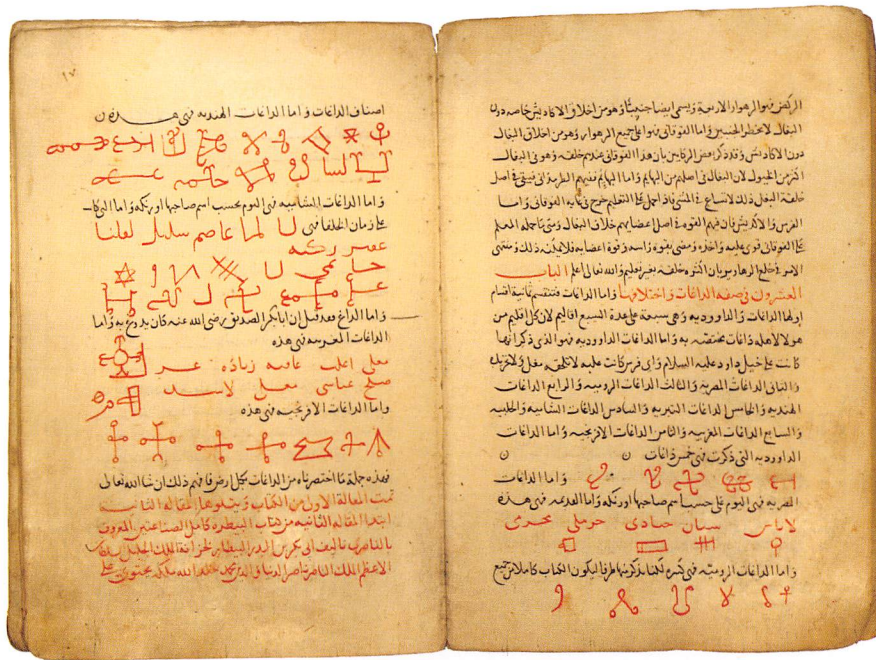 الركض فهو الرهوار الاربعة ويسمى ايضا جنيبيا وهو من اخلاق الاكاديش خاصه دون
البغال لا تخطر الجنبين واما الفوقانى فهو اعلى جميع الرهوار وهو من اخلاق البغال
دون الاكاديش وقد ذكر بعض الركابين بان هذا الفوقانى عندهم خلقه وهو فى البغال
اكثر من الخيول لان البغال فى اصلهم من البهايم واما البهايم
خلقة البغل ذلك لاتساع فى المشى فاذا حمل على التعليم خرج فى غايه الفوقانى واما
الفرس والاكديش فان فيهم القوه فى اصل اعضايهم خلاف البغال ومتى ما حمله المعلم
على الفوقانى قوى عليه واخذه ومضى بقوه راسه وقوة اعضايه فلا يمكن ذلك ومنتهى
الامر فى خلع الرهاوير بان اكثره خلقه بغير تعليم والله تعالى اعلم الباب
العشرون فى صفه الداغات واختلافها واما الداغات فتنقسم ثمانية اقسام
اولها الداغات الداووديه وهى سبعة على عدة السبع اقاليم لان كل اقليم من
هولا لاهله داغات مختصه به واما الداغات الداووديه فهو الذى ذكر انها
كانت على خيل داود عليه السلام واى فرس كانت عليه لا تلحق
والثانى الداغات المصريه والثالث الداغات الروميه والرابع الداغات
الهنديه والخامس الداغات التتريه والسادس الداغات الشاميه والحلبيه
والسابع الداغات العربيه والثامن الداغات الافرنجيه واما الداغات
الداووديه التى ذكرت فهى خمس داغات
واما الداغات
المصريه فهى اليوم على حسب اسم صاحبها او رنكه واما القديمه فهى هذه
لاباس
واما الداغات الروميه فهى كثيره لكننا ذكرنا طرفا ليكون الكتاب كاملا من جميع
١٧
اصناف الداغات واما الداغات الهنديه فهى هذه
واما الداغات الشاميه فهى اليوم بحسب اسم صاحبها او رنكه واما التى كا
على زمان الخلفا فهى عاصم
واما الداغ فقد قيل ان ابا بكر الصديق رضى الله عنه كان يدوغ به واما
الداغات العربيه فهى هذه
عافيه زياده
صلح عباسى
واما الداغات الافرنجيه فهى هذه
فهذه جملة ما اختصرناه من الداغات بكل ارض فافهم ذلك ان شا الله تعالى
تمت المقالة الاولى من الكتاب ويتلوها المقاله الثانيه
ابتدا المقاله الثانيه من كتاب البيطره كامل الصناعتين المعروف
بالناصرى تاليف ابى بكر بن البدر البيطار لخزانة الملك الجليل
الاعظم الملك الناصر ناصر الدنيا والدين محمد خلد الله ملكه يحتوى على